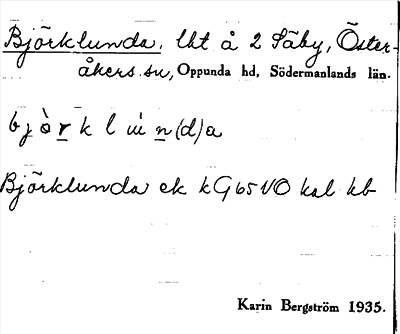 Björklunda, lht å 2 Säby, Öster-
åkers sn, Oppunda hd, Södermanlands län.
b j ò r k l ù n (d) a
Björklunda ek kG 65 NO kal kb
Karin Bergström 1935.